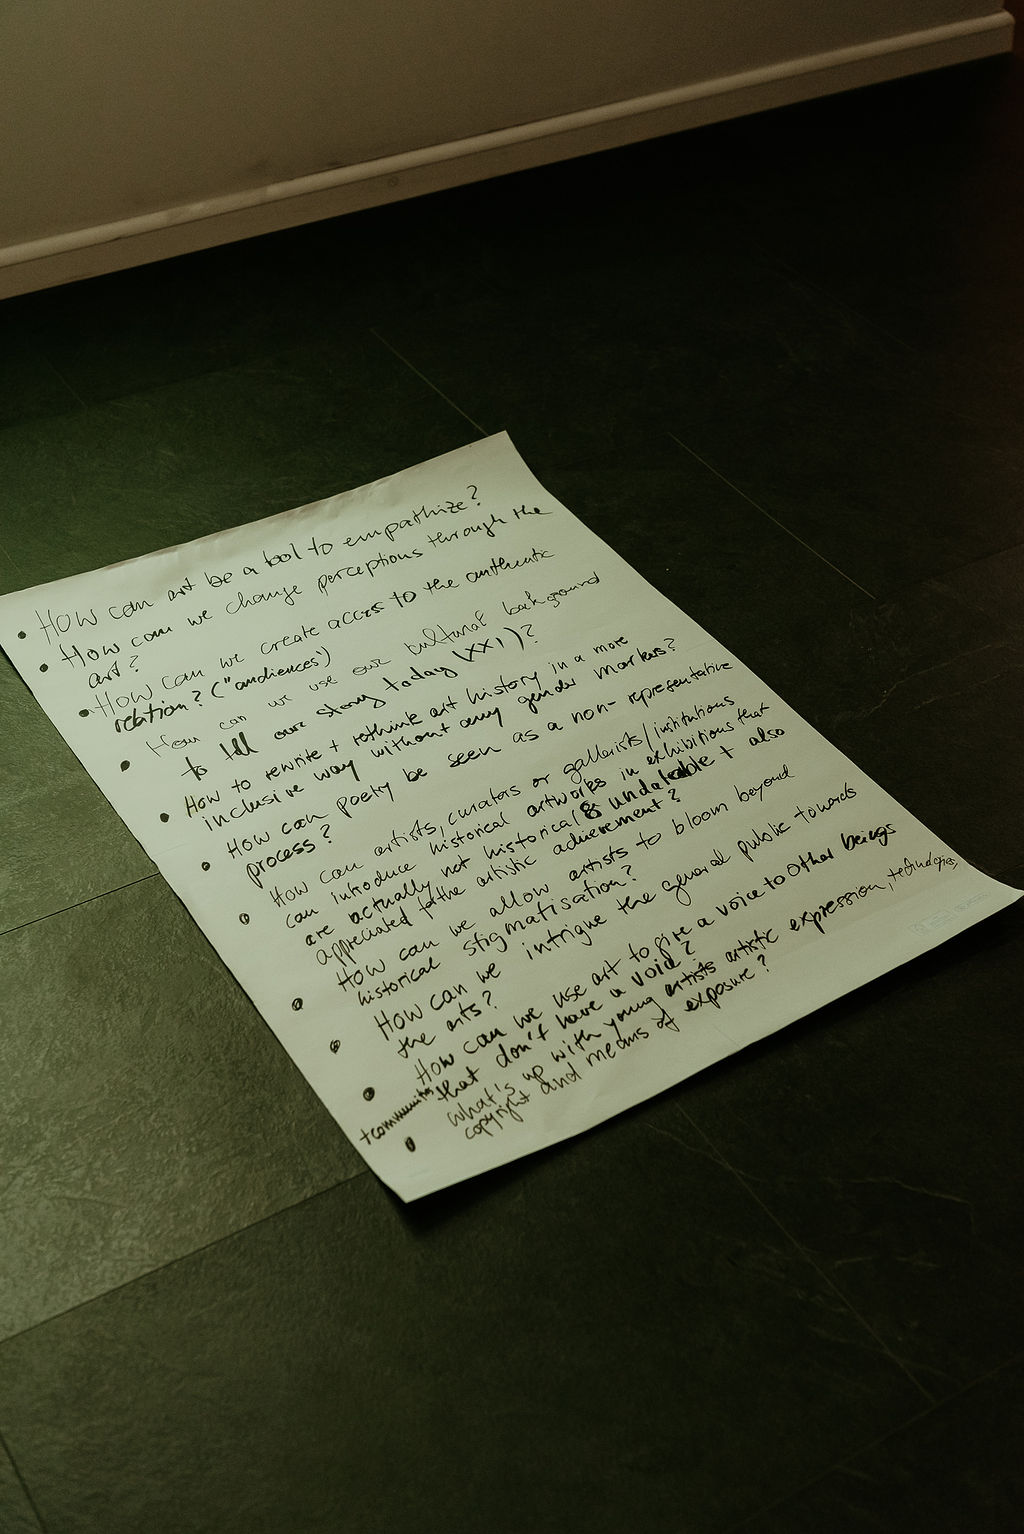 • How can art be a tool to empathize?
• How can we change perceptions through the
art?
• How can we create acces to the authentic
relation? ("audiences")
• How can we use our cultural background
to tell our story today (XXI)?
• How to rewrite + rethink art history in a more
inclusive way without any gender markers?
• How can poetry be seen as a non-representative
process?
• How can artists, curators or gallerists/institutions
can introduce historical artworks in exhibitions that
are actually not historical & undatable + also
appreciated for the artistic achievement?
• How can we allow artists to bloom beyond
historical stigmatisation?
• How can we intrigue the general public towards
the arts?
• How can we use art to give a voice to other beings
+communities that don't have a voice?
• what's up with young artists artistic expression, technologies,
copyright and means of exposure?